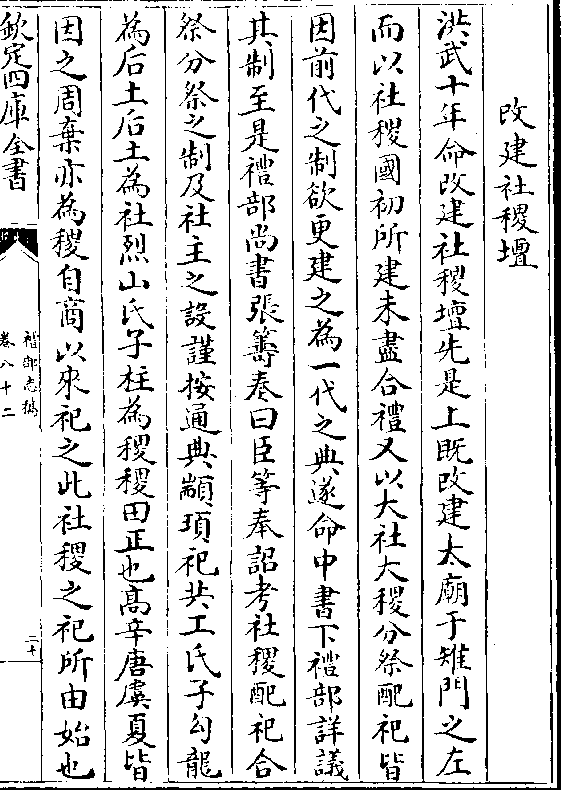 改建社稷壇
洪武十年命改建社稷壇先是上既改建太廟于雉門之左
而以社稷國初所建未盡合禮又以大社大稷分祭配祀皆
因前代之制欲更建之為一代之典遂命中書下禮部詳議
其制至是禮部尚書張籌奏曰臣等奉詔考社稷配祀合
祭分祭之制及社主之設謹按通典顓頊祀共工氏子勾龍
為后土后土為社烈山氏子柱為稷稷田正也髙辛唐虞夏皆
因之周棄亦為稷自商以來祀之此社稷之祀所由始也
欽定四庫全書
禮部志稿
卷八十二
二十